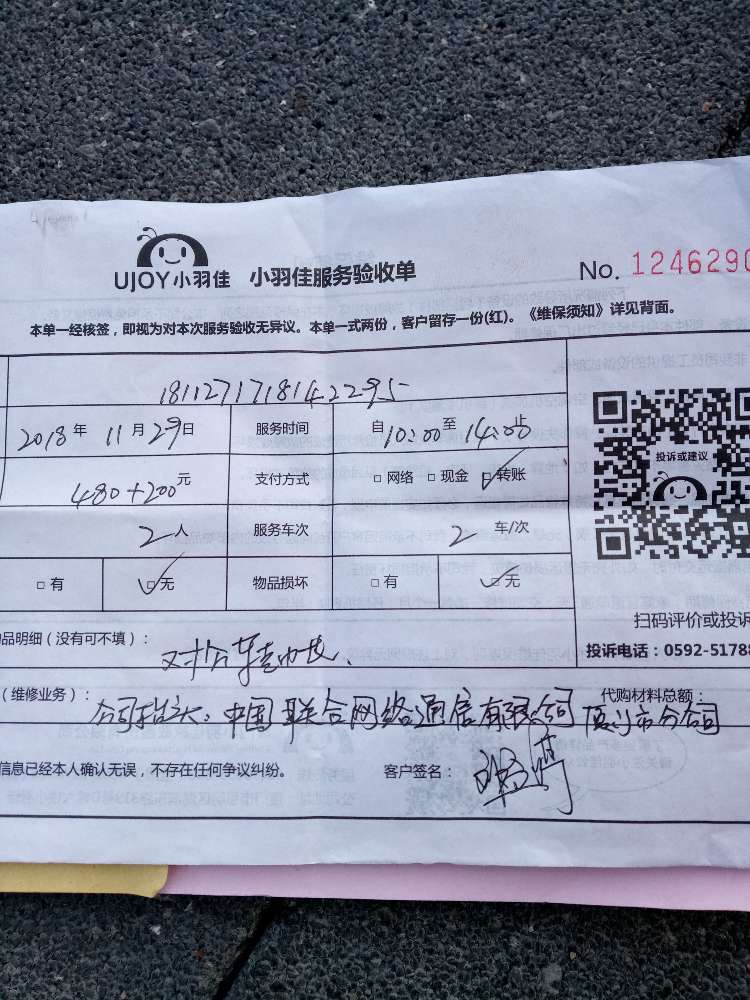 UJOY小羽佳 小羽佳服务验收单 No. 1246290
本单一经核签，即视为对本次服务验收无异议。本单一式两份，客户留存一份(红)。《维保须知》详见背面。
1811271718142295
2018年 11月29日 服务时间 自10:00至14:00止
480+200元 支付方式 □网络 □现金 □转账
投诉或建议
2人 服务车次 2车/次
□有 □无 物品损坏 □有 □无
扫码评价或投诉
品明细（没有可不填）：
投诉电话：0592-51788
（维修业务）： 公司抬头：中国联合网络通信有限公司厦门市分公司 代购材料总额：
信息已经本人确认无误，不存在任何争议纠纷。 客户签名：